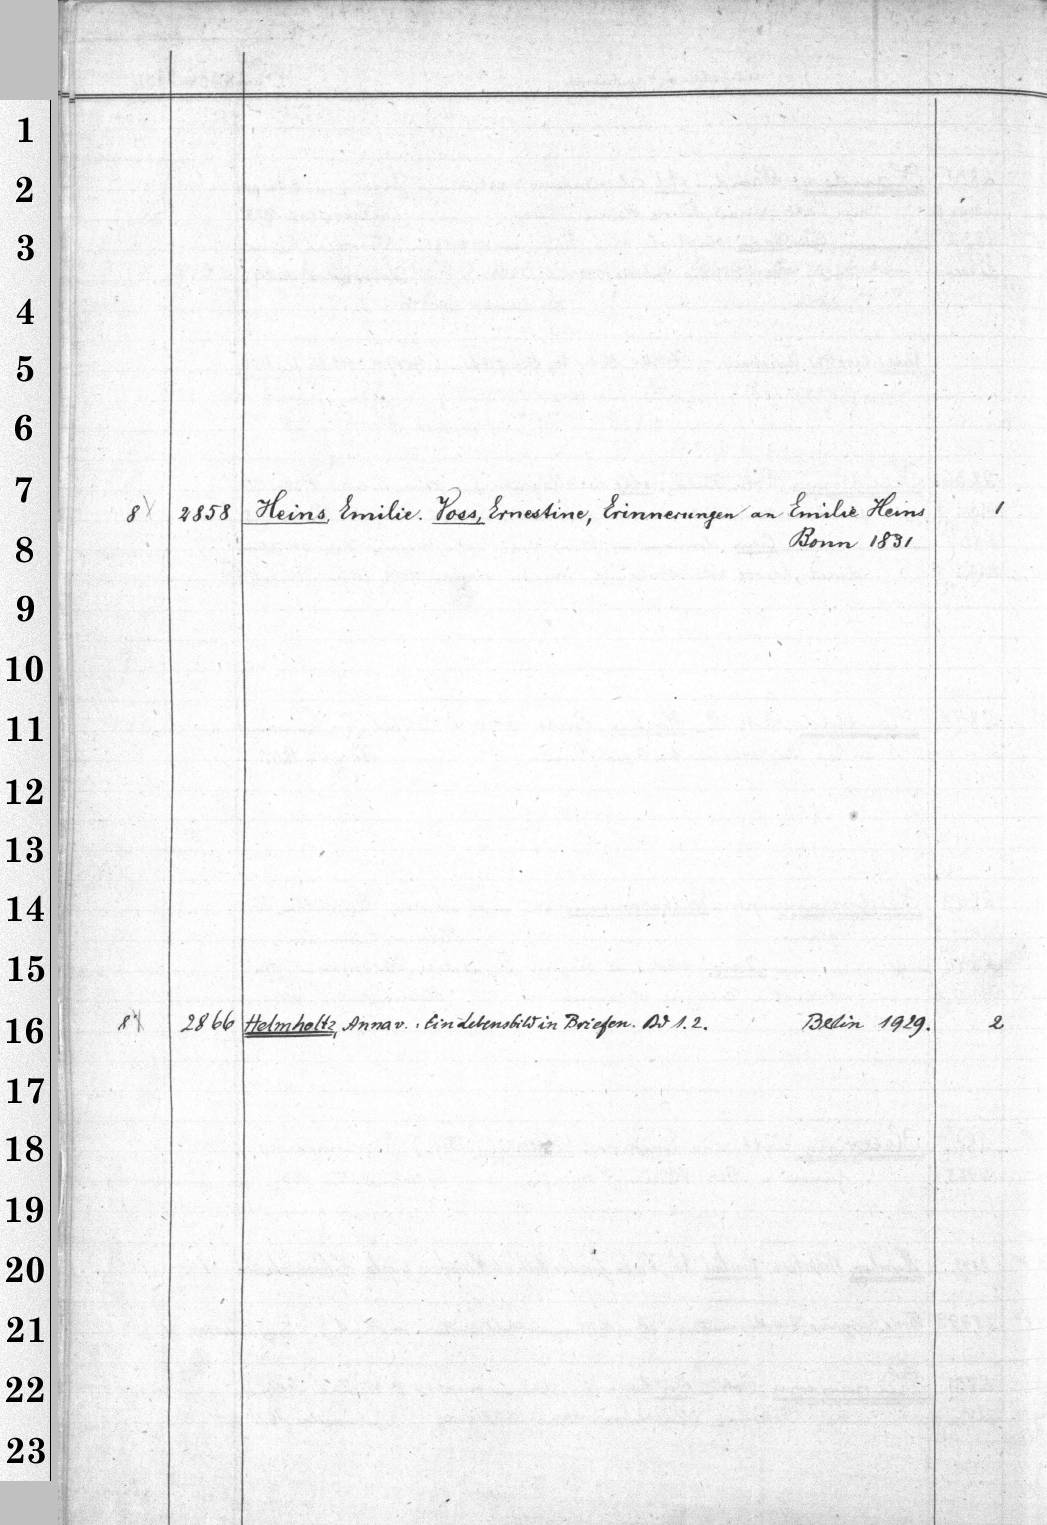 1
2
3
4
5
6
7
8 2858 Heins, Emilie. Voss, Ernestine, Erinnerungen an Emilie Heins 1
8
Bonn 1831
9
10
11
12
13
14
15
16
8 2866 Helmholtz, Anna v. : Ein Lebensbild in Briefen. Bd 1. 2. Berlin 1929. 2
17
18
19
20
21
22
23